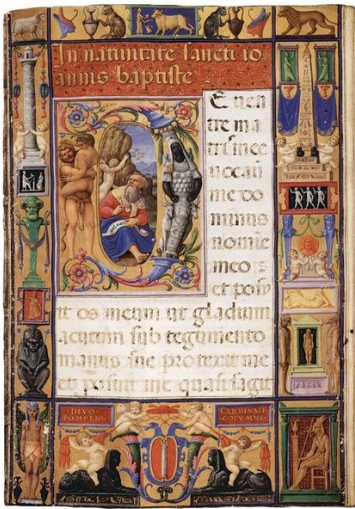 In natiuitate sancti io
annis baptiste
E uen
tre ma
tris mee
uocauit
me do
minus
nomie
meo :
et posu
it os meum ut gladium
acutum sub tegumento
manus sue protexit me
et posuit me quasi sagit
DIVO POMPEIO
CARDINALI COLVMNA